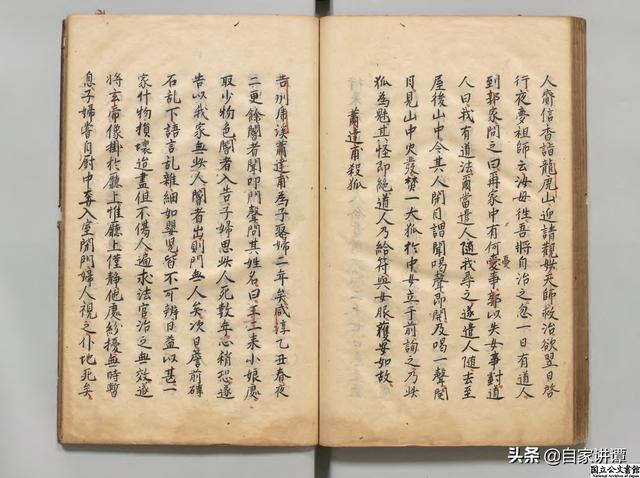 人齎信香詣龍虎山迎請觀妙天師救治欲翌日啓
行夜夢祖師云汝毋徃吾將自治之忽一日有道人
到郭家問之曰尔家中有何憂事郭以失女事對道
人曰我有道法爾當遣人隨我尋之遂遣人隨去至
屋後山中令其人閉目謂聞喝聲即開及喝一聲開
目見山中火發焚一大狐於中女立于前詢之乃此
狐為魅其怪即絕道人乃給符與女服獲安如故
蕭達甫殺狐
告別庸溪蕭達甫為子娶婦二年矣咸淳乙丑春夜
二更餘閽者聞叩門聲問其姓名曰王二來小娘處
取少物色閽者入告子婦思此人死數年心稍恐遂
告以我家無此人閽者出則門無人矣次日簷前磚
石乱下語言乱雜細如嬰児皆不可辨日益以甚一
家什物損壞迨盡但不傷人遍求法官治之無效遂
將玄帝像掛於廳上惟廳上僅靜他處紛擾無時暫
息子婦嘗自厨中奔入室閉門婦人視之仆地死矣
头条 @自家讲谭
国立公文書館
National Archives of Japan